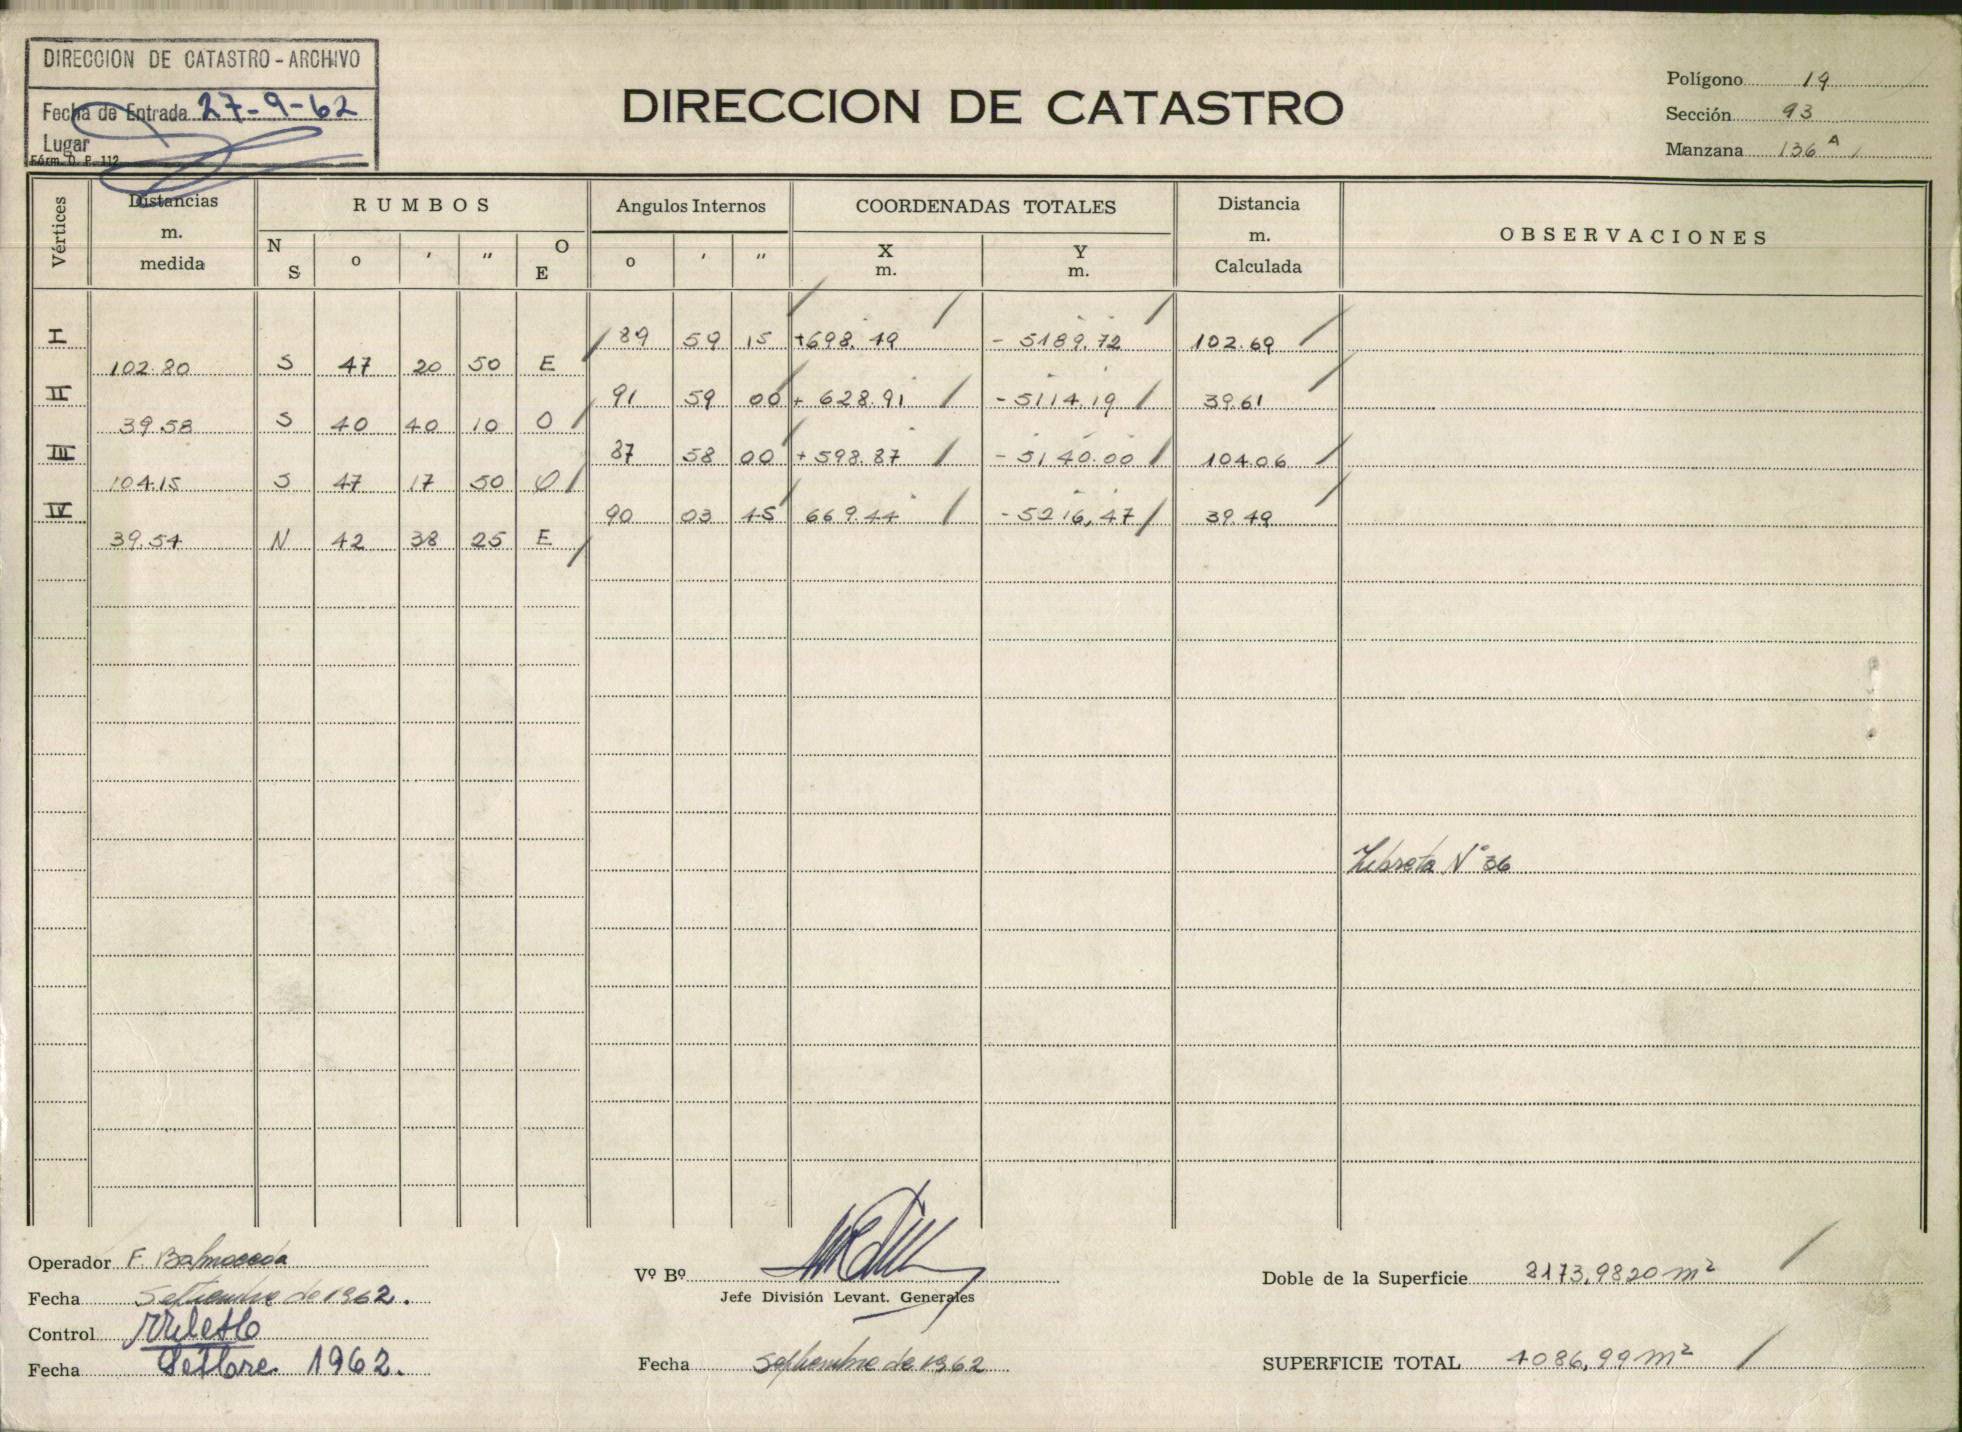 DIRECCION DE CATASTRO - ARCHIVO
Fecha de Entrada 27-9-62
Lugar
Fórm. D. P. 112
DIRECCION DE CATASTRO
Polígono 19
Sección 93
Manzana 136 A
Vértices
Distancias m. medida
RUMBOS
N S o ' " O E
Angulos Internos
o ' "
COORDENADAS TOTALES
X m. Y m.
Distancia m. Calculada
OBSERVACIONES
I 89 59 15 +698.49 - 5189.72 102.69
102.80 S 47 20 50 E
II 91 59 00 + 628.91 - 5114.19 39.61
39.58 S 40 40 10 O
III 87 58 00 + 598.87 - 5140.00 104.06
104.15 S 47 17 50 O
IV 90 03 45 669.44 - 5216,47 39.49
39.54 N 42 38 25 E
Libreta N° 36
Operador F. Balmaceda
Fecha Setiembre de 1962.
Control
Fecha Setbre. 1962.
Vº Bº
Jefe División Levant. Generales
Fecha Septiembre de 1962
Doble de la Superficie 8173,9820 m²
SUPERFICIE TOTAL 4086,99 m²